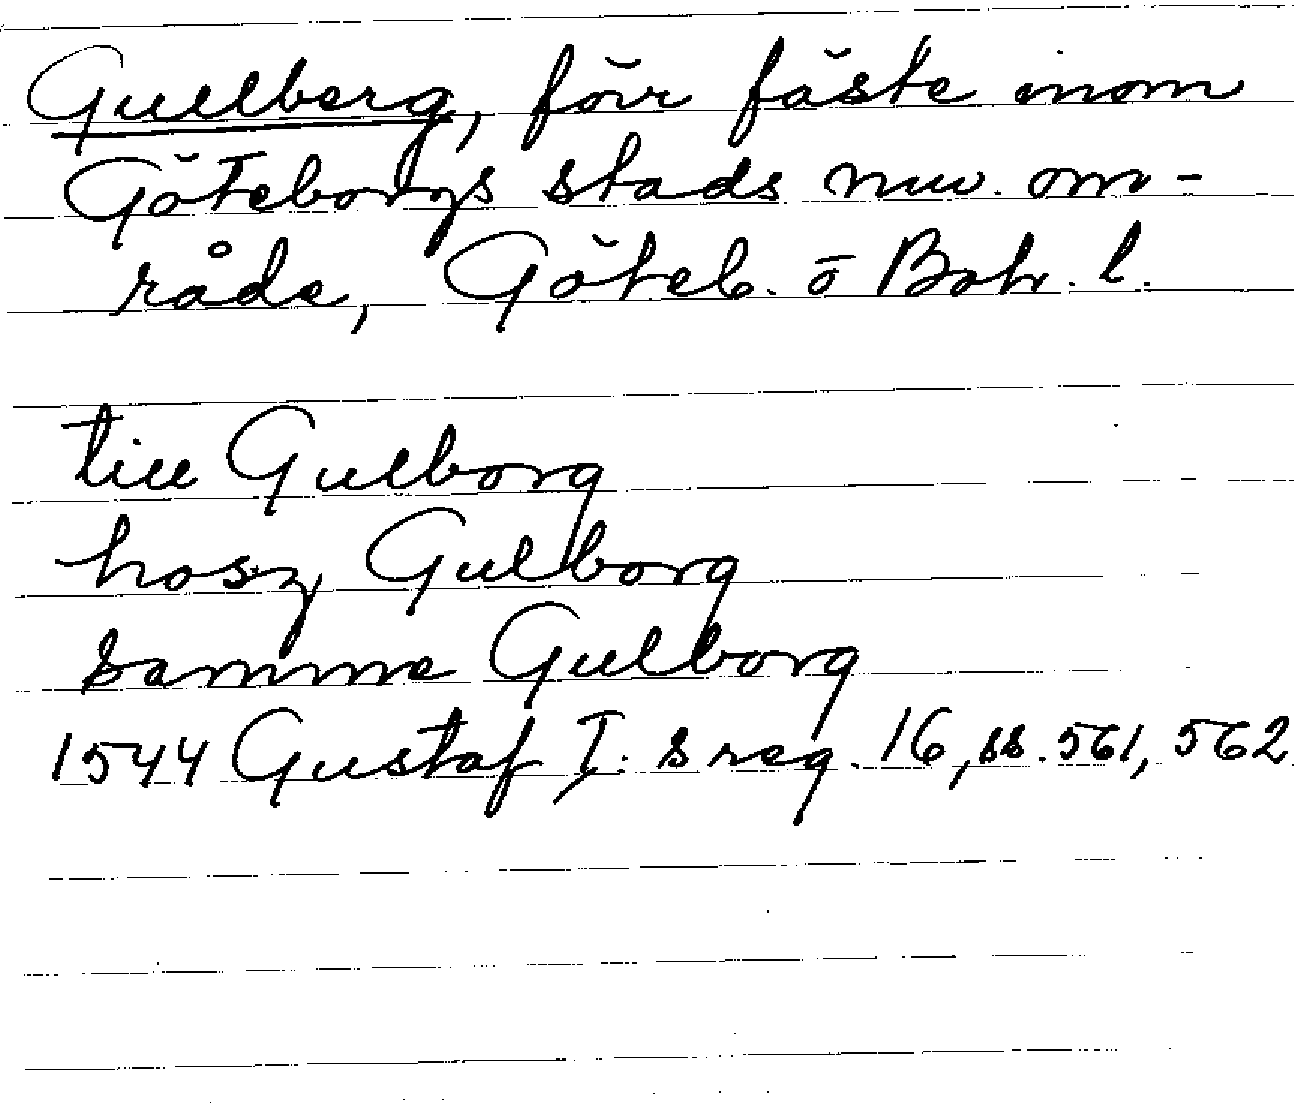 Gullberg, förr fäste inom
Göteborgs stads nuv. om-
råde, Göteb. o Boh. l.
till Gulborg
hosz Gulborg
samme Gulborg
1544 Gustaf I:s reg. 16, ss. 561, 562